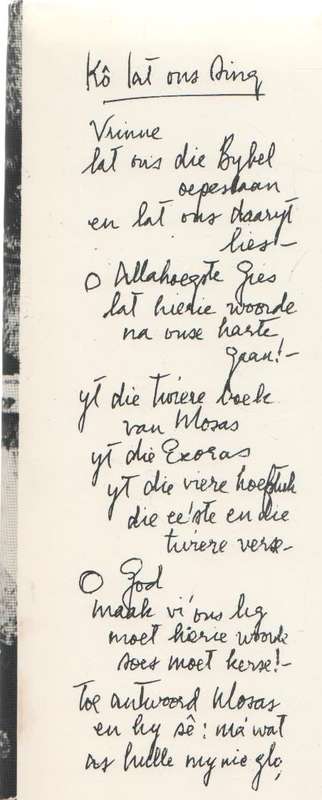 Kô lat ons sing
Vrinne
lat ons die Bybel
oepeslaan
en lat ons daaryt
lies—
O Allahoegste Gies
lat hierie woorde
na onse harte
gaan!—
yt die twiere boek
van Mosas
yt die Exoras
yt die viere hoeftuk
die ee'ste en die
twiere verse—
O God
maak vi' ons lig
moet hierie woorde
soes moet kerse!—
Toe antwoord Mosas
en hy sê: má wat
as hulle my nie glo,